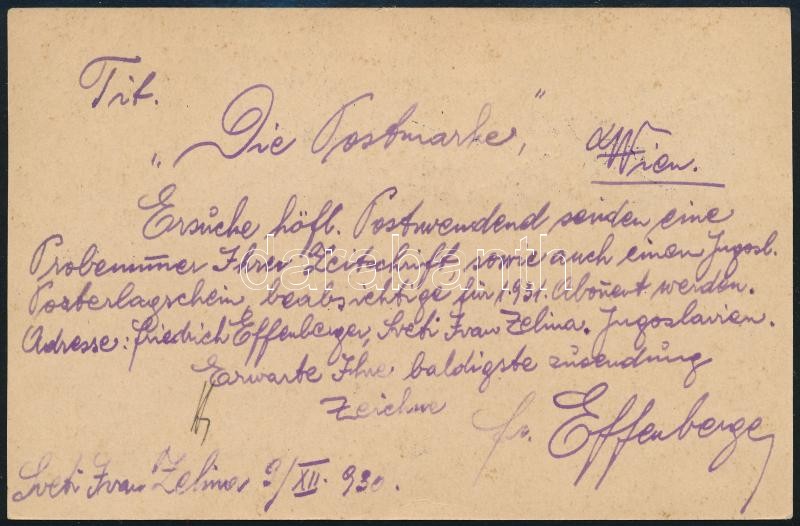 Tit.
„Die Postmarke,"
Wien.
Ersuche höfl. Postwendend senden eine
Probenummer Ihrer Zeitschrift sowie auch einen Jugosl.
Posterlagschein, beabsichtige für 1931. Abonent werden.
Adresse: Friedrich Effenberger, Sveti Ivan Zelina. Jugoslavien.
Erwarte Ihre baldigste zusendung
Zeichne
fr. Effenberger
Sveti Ivan Zelina 9/XII. 930.
darabanth